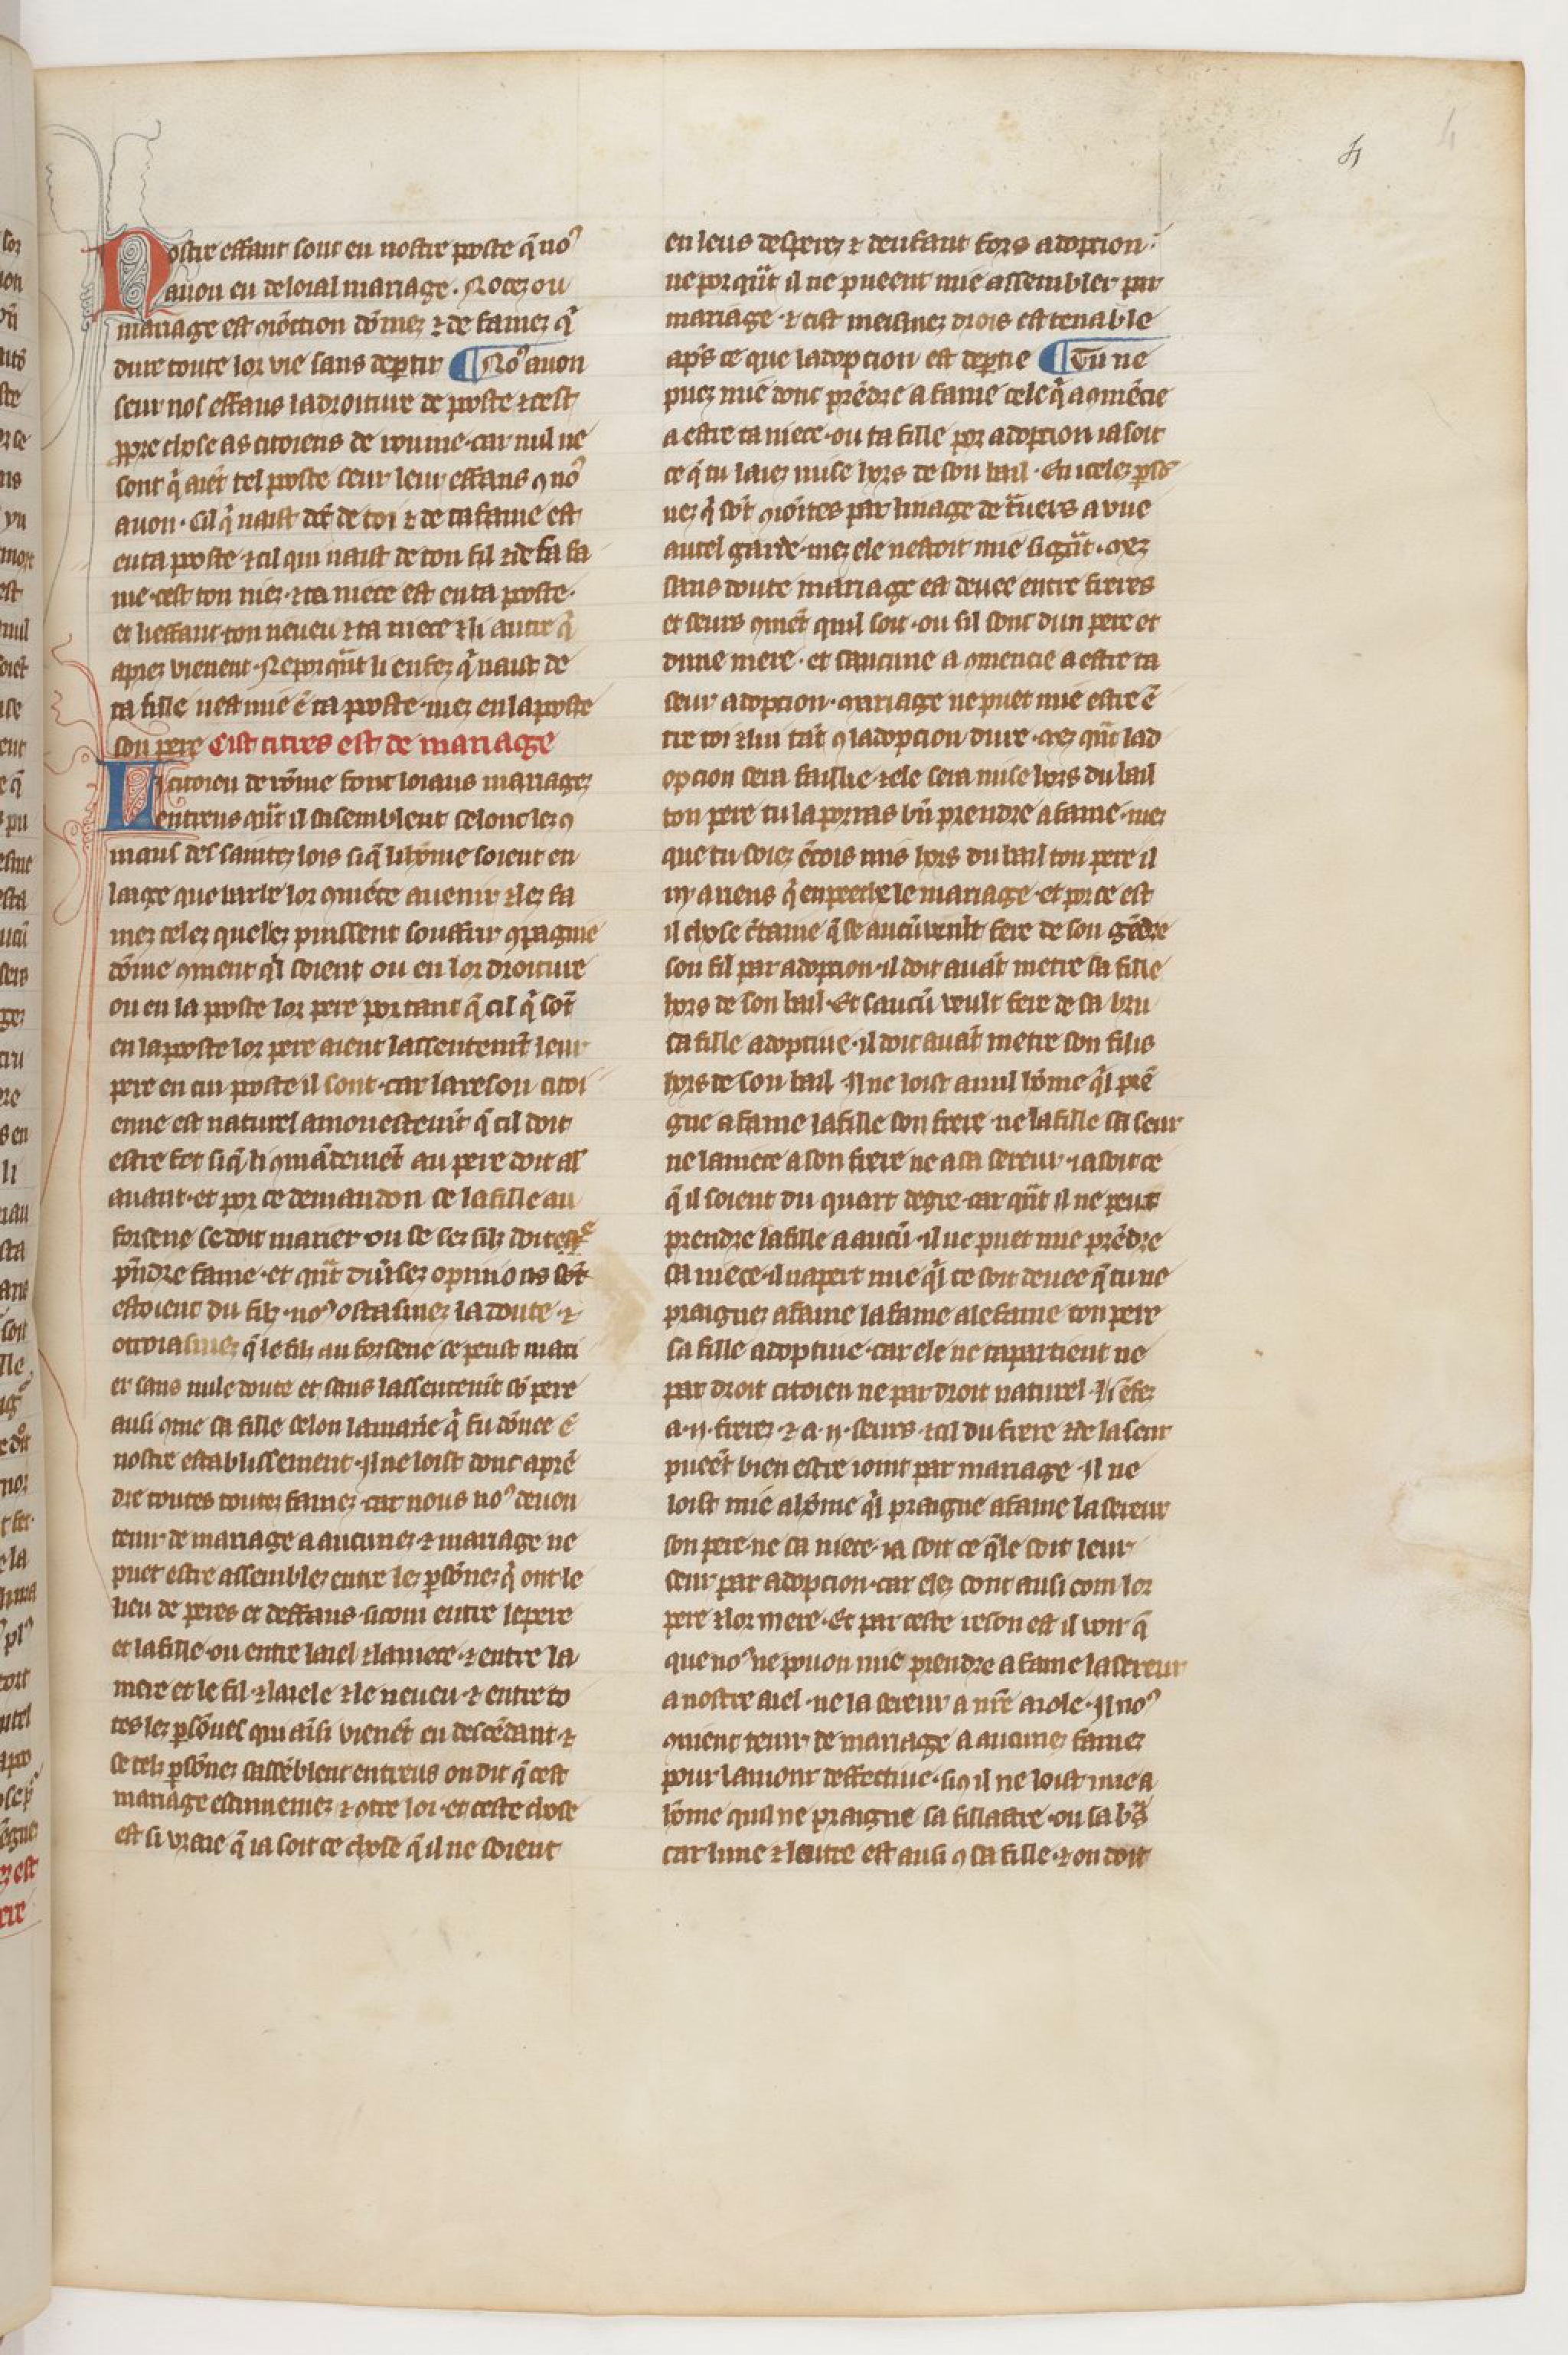 4
Nostre effant sont en nostre poste q̃ noꝰ
auon eu de loial mariage. Nocez ou
mariage est ꝯiõction dõmez ⁊ de famez q̃
dure toute lor vie sans deꝑtir ¶ Noꝰ auon
seur nos effans la droiture de poste ⁊ cest
ꝓpre chose as citoiens de romme · car nul ne
sont q̃ aiẽt tel poste seur leur effans ꝯ noꝰ
auon · Cil q̃ naist dõt de toi ⁊ de ta fame est
en ta poste · ⁊ cil qui naist de ton fil ⁊ de sa fa
me · cest ton niez · ⁊ ta niece est en ta poste ·
et li effant · ton neueu ⁊ ta niece ⁊ li autre q̃
aprez vienent · Neporqũt li enfez q̃ naist de
ta fille nest mie ẽ ta poste · mez en la poste
son pere Cist titres est de mariage
Li citoien de rõme font loiaus mariagez
entreus qũt il sasemblent selonc lez ꝯ
mans des saintez lois si q̃ li hõme soient en
laage que barbe lor ꝯmẽce a venir ⁊ lez fa
mez celez quelez puissent souffrir ꝯpagnie
dõme ꝯment q̃l soient ou en lor droiture
ou en la poste lor pere por tant q̃ cil q̃ sõt
en la poste lor pere aient lassentemẽt leur
pere en cui poste il sont · car la reson citoi
enne est naturel amonestemẽt q̃ cil doit
estre fet si q̃ li ꝯmãdemẽt au pere doit al
auant · et por ce demandon se la fille au
forsene se doit marier · ou se sez filz doit
pñdre fame · et qũt diũsez opinions sõt
estoient du filz · noꝰ ostasmez la doute · ⁊
otroiasmez q̃ le filz au forsene se peust mari
er sans nule doute et sans lassentemẽt sõ pere
ausi ꝯme sa fille selon la maniẽ q̃ fu dõnee ẽ
nostre establissement · Il ne loist donc a prẽ
dre toutes toutez famez · car nous noꝰ deuon
tenir de mariage a aucunez · ⁊ mariage ne
puet estre assemblez entre lez ꝑsõnez q̃ ont le
lieu de peres et deffans · si com entre le pere
et la fille · ou entre laiel ⁊ la niece · ⁊ entre la
mere et le fil · ⁊ laiele ⁊ le neueu · ⁊ entre to
tes lez ꝑsõnes qui aĩsi vienẽt en descẽdant · ⁊
se telz ꝑsõnez sassẽblent entreus on dit q̃ cest
mariage escinnemez ⁊ otre loi · et ceste chose
est si vraie q̃ ia soit ce chose q̃ il ne soient
en leus desperez ⁊ deffant fors adopcion ·
neporqũt il ne pueent mie assembler par
mariage · ⁊ cist meismez drois est tenable
apˢ ce que ladopcion est deꝑtie ¶ Tu ne
puez mie donc prẽdre a fame cele q̃ a ꝯmẽcie
a estre ta niece · ou ta fille por adopcion ia soit
ce q̃ tu laiez mise hors de son bail · En icelez ꝑsõ
nez q̃ sõt ꝯiõtes par linage de trauers a vne
autel garde · mez ele nestoit mie si grãt · Mez
sans doute mariage est deuee entre freres
et seurs ꝯmẽt quil soit · ou sil sont dun pere et
dune mere · et saucune a ꝯmencie a estre ta
seur adopcion · Mariage ne puet mie estre ẽ
tre toi ⁊ lui tãt ꝯ ladopcion dure · Mez qũt lad
opcion sera faillie ⁊ ele sera mise hors du bail
ton pere tu la porras bñ prendre a fame · mez
que tu soiez ẽcois mis hors du bail ton pere il
ny a riens q̃ enpeche le mariage · et por ce est
il chose certaine q̃ se aucũ veult fere de son gẽdre
son fil par adopcion · il doit auãt metre sa fille
hors de son bail · Et saucũ veult fere de sa bru
sa fille adoptiue · il doit auãt metre son filis
hors de son bail · Il ne loist a nul hõme q̃l prẽ
gne a fame la fille son frere · ne la fille sa seur
ne la niece a son frere ne a sa sereur · ia soit ce
q̃ il soient du quart degre · car qũt il ne peut
prendre la fille a aucũ · il ne puet mie prẽdre
sa niece · il napert mie q̃l ce soit deuee q̃ tu ne
praignez a fame la fame ale fame ton pere
sa fille adoptiue · car ele ne tapartient ne
par droit citoien ne par droit naturel · Li ẽfez
a · ii · frerez · ⁊ a · ii · seurs · ⁊ cil du frere ⁊ de la seur
pueẽt bien estre ioint par mariage · Il ne
loist mie a hõme q̃l praigne a fame la sereur
son pere · ne sa niece · ia soit ce q̃le soit leur
seur par adopcion · car elez sont ausi com lor
pere ⁊ lor mere · Et par ceste reson est il voir q̃
que noꝰ ne pouon mie prendre a fame la sereur
a nostre aiel · ne la sereur a nr̃e aiole · Il noꝰ
ꝯuient tenir de mariage a aucunez famez
pour lamour deffectiue · si ꝯ il ne loist mie a
hõme quil ne praigne sa fillastre · ou sa brũ
car lune ⁊ lautre est ausi ꝯ sa fille · ⁊ on doit